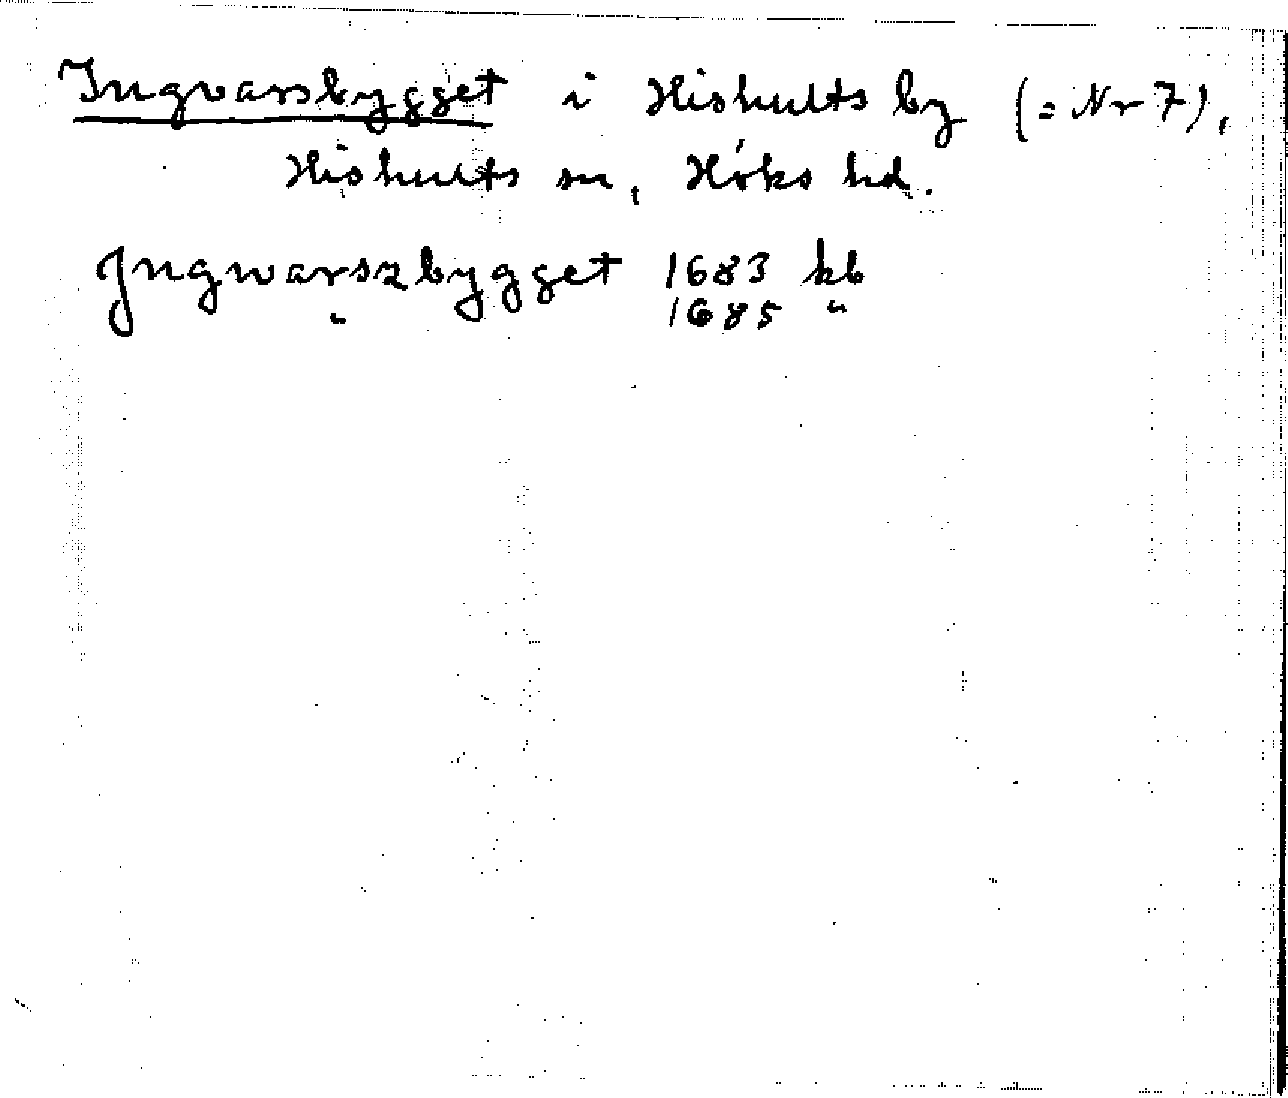 Ingvarsbygget i Hishults by (= Nr 7),
Hishults sn, Höks hd.
Jngwarszbygget 1683 kb
" 1685 "